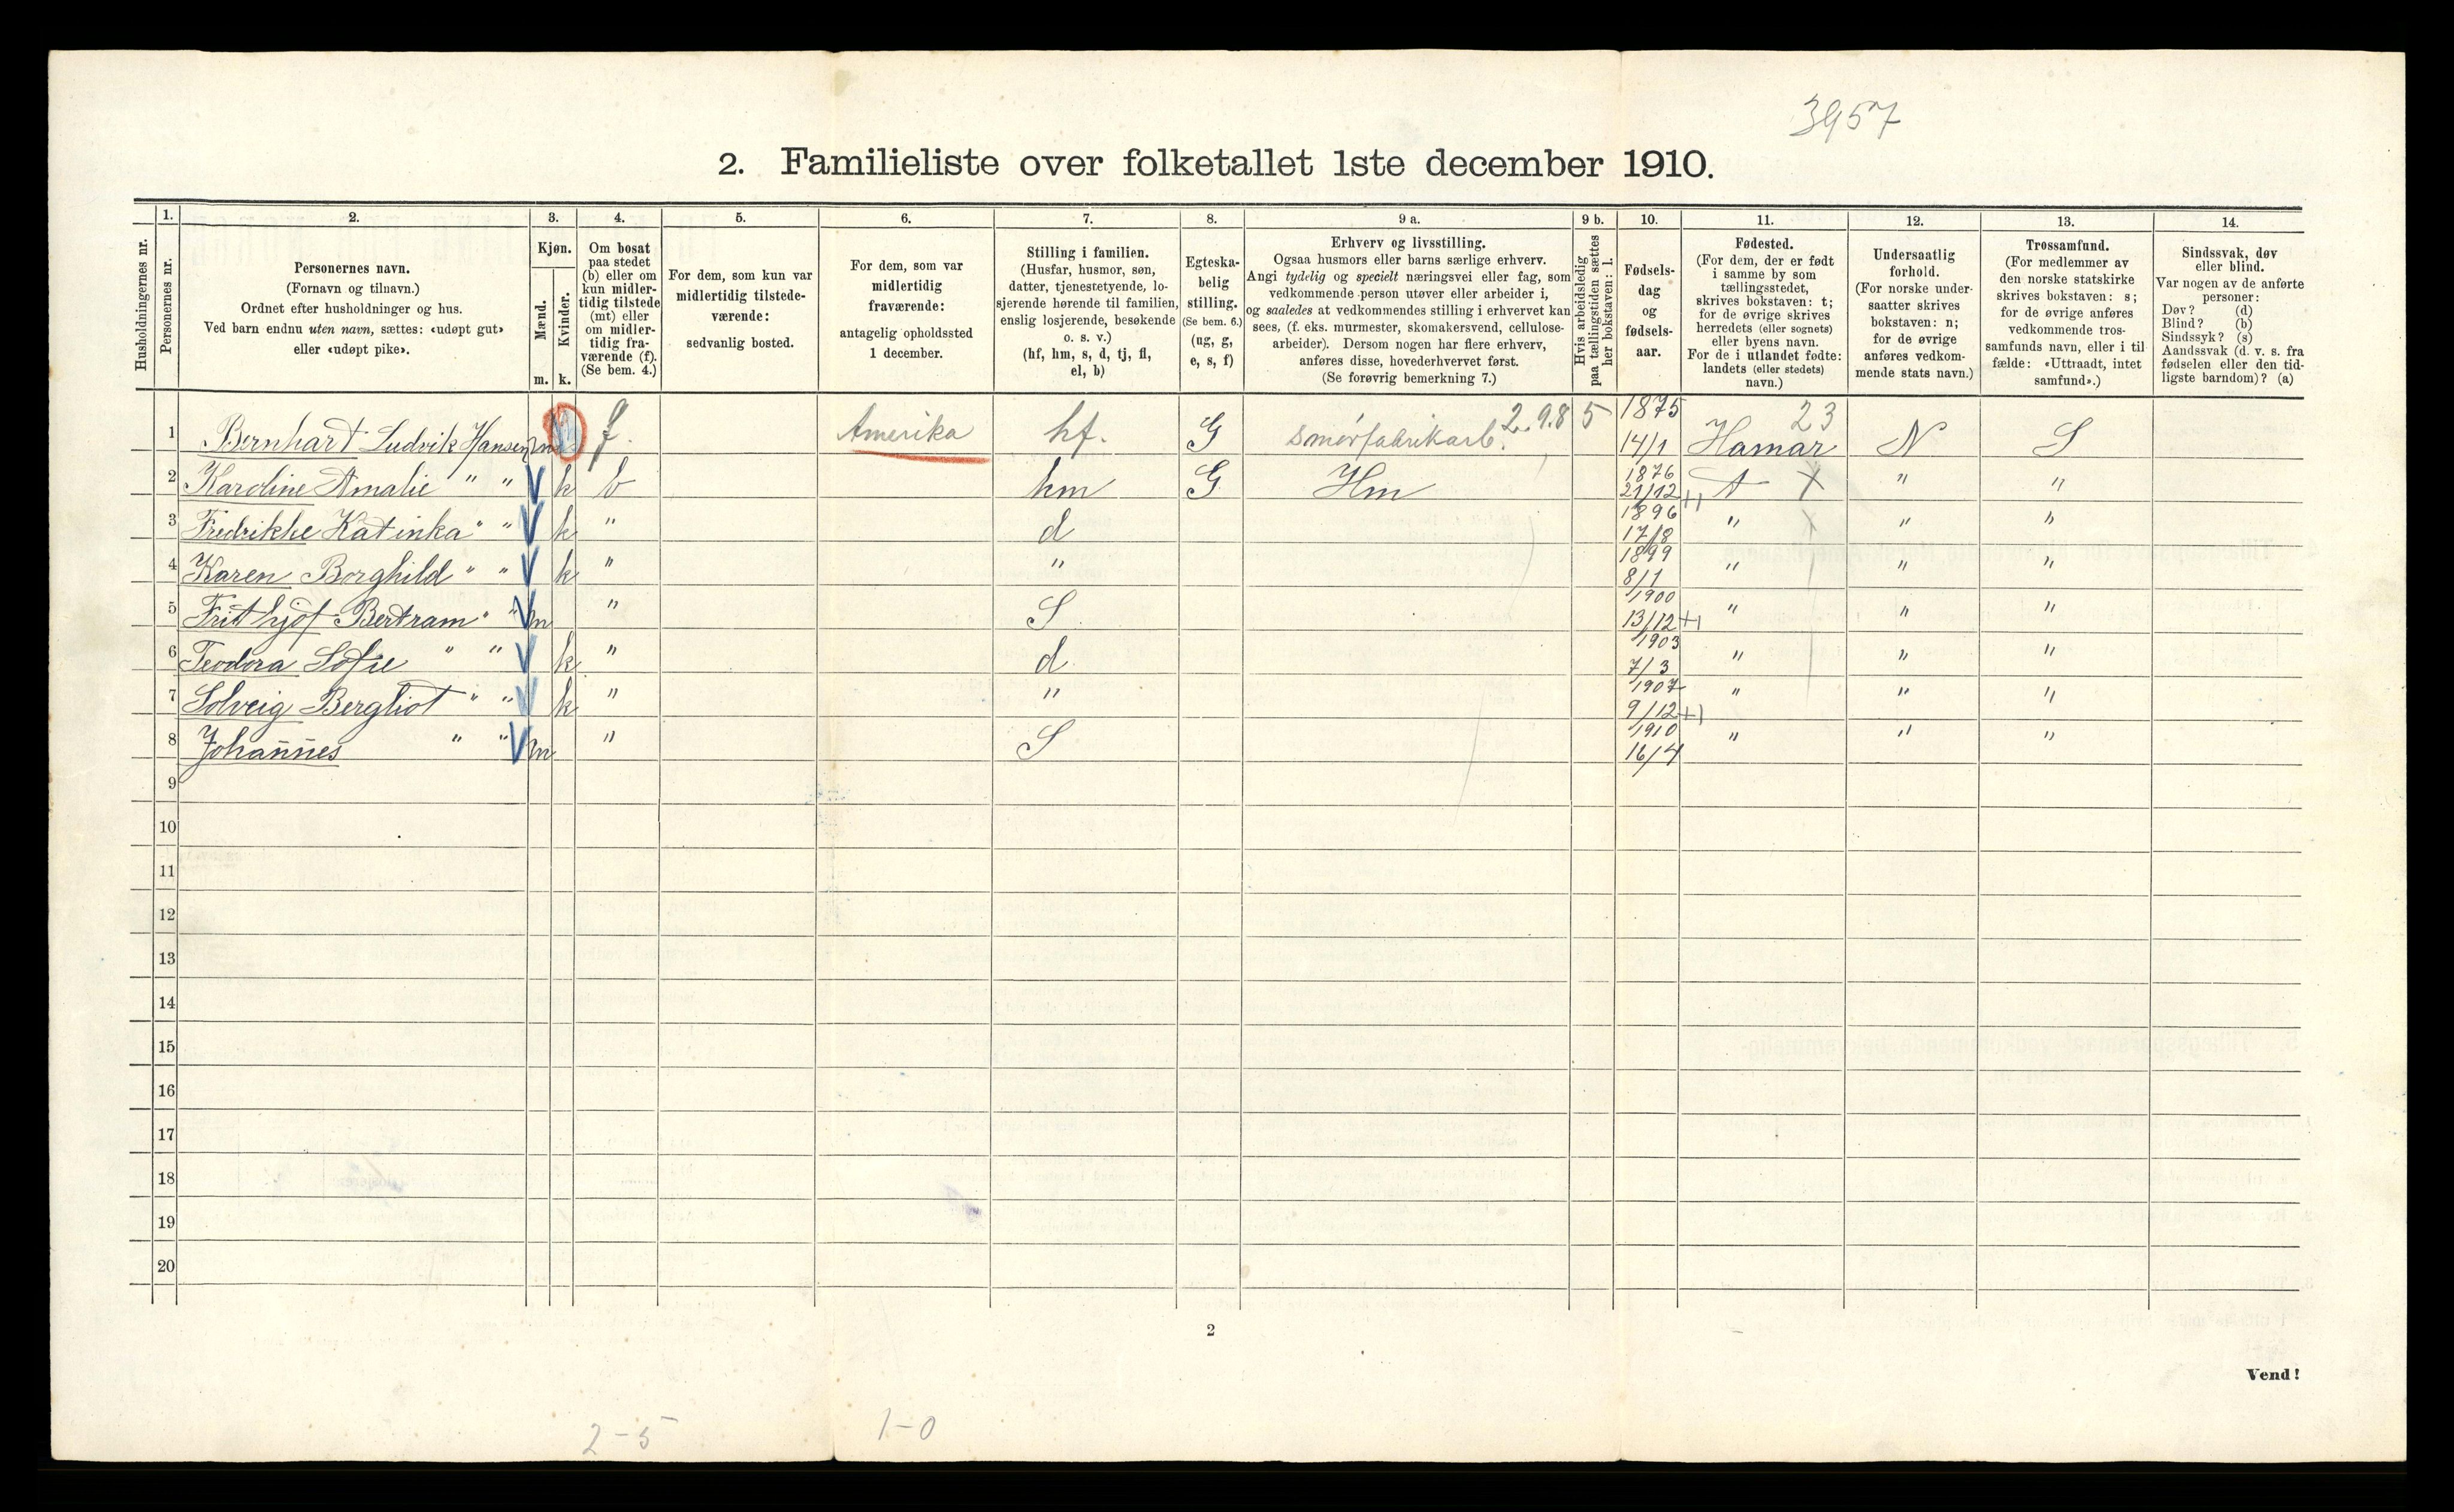 3957
2. Familieliste over folketallet 1ste december 1910.
Husholdningernes nr.
1.
Personernes nr.
2.
Personernes navn.
(Fornavn og tilnavn.)
Ordnet efter husholdninger og hus.
Ved barn endnu uten navn, sættes: «udøpt gut»
eller «udøpt pike».
3.
Kjøn.
Mænd.
Kvinder.
m. k.
4.
Om bosat
paa stedet
(b) eller om
kun midler-
tidig tilstede
(mt) eller
om midler-
tidig fra-
værende (f).
(Se bem. 4.)
5.
For dem, som kun var
midlertidig tilstede-
værende:
sedvanlig bosted.
6.
For dem, som var
midlertidig
fraværende:
antagelig opholdssted
1 december.
7.
Stilling i familien.
(Husfar, husmor, søn,
datter, tjenestetyende, lo-
sjerende hørende til familien,
enslig losjerende, besøkende
o. s. v.)
(hf, hm, s, d, tj, fl,
el, b)
8.
Egteska-
belig
stilling.
(Se bem. 6.)
(ug, g,
e, s, f)
9 a.
Erhverv og livsstilling.
Ogsaa husmors eller barns særlige erhverv.
Angi tydelig og specielt næringsvei eller fag, som
vedkommende person utøver eller arbeider i,
og saaledes at vedkommendes stilling i erhvervet kan
sees, (f. eks. murmester, skomakersvend, cellulose-
arbeider). Dersom nogen har flere erhverv,
anføres disse, hovederhvervet først.
(Se forøvrig bemerkning 7.)
9 b.
Hvis arbeidsledig
paa tællingstiden sættes
her bokstaven: l.
10.
Fødsels-
dag
og
fødsels-
aar.
11.
Fødested.
(For dem, der er født
i samme by som
tællingsstedet,
skrives bokstaven: t;
for de øvrige skrives
herredets (eller sognets)
eller byens navn.
For de i utlandet fødte:
landets (eller stedets)
navn.)
12.
Undersaatlig
forhold.
(For norske under-
saatter skrives
bokstaven: n;
for de øvrige
anføres vedkom-
mende stats navn.)
13.
Trossamfund.
(For medlemmer av
den norske statskirke
skrives bokstaven: s;
for de øvrige anføres
vedkommende tros-
samfunds navn, eller i til
fælde: «Uttraadt, intet
samfund».)
14.
Sindssvak, døv
eller blind.
Var nogen av de anførte
personer:
Døv? (d)
Blind? (b)
Sindssyk? (s)
Aandssvak (d. v. s. fra
fødselen eller den tid-
ligste barndom)? (a)
1 Bernhart Ludvik Hansen m f. Amerika hf. G smörfabrikarb. 2.98 5 1875 14/1 Hamar 23 N S
2 Karoline Amalie " " k b hm G Hm 1876 21/12 +1 t X " "
3 Fredrikke Katinka " " k " d 1896 17/8 " X " "
4 Karen Borghild " " k " " 1899 8/1 " " "
5 Frithjof Bertram " " m " S 1900 13/12 +1 " " "
6 Teodora Sofie " " k " d 1903 7/3 " " "
7 Solveig Bergliot " " k " " 1907 9/12 +1 " " "
8 Johannes " " m " S 1910 16/4 " " "
9
10
11
12
13
14
15
16
17
18
19
20
2
Vend!
2-5 1-0